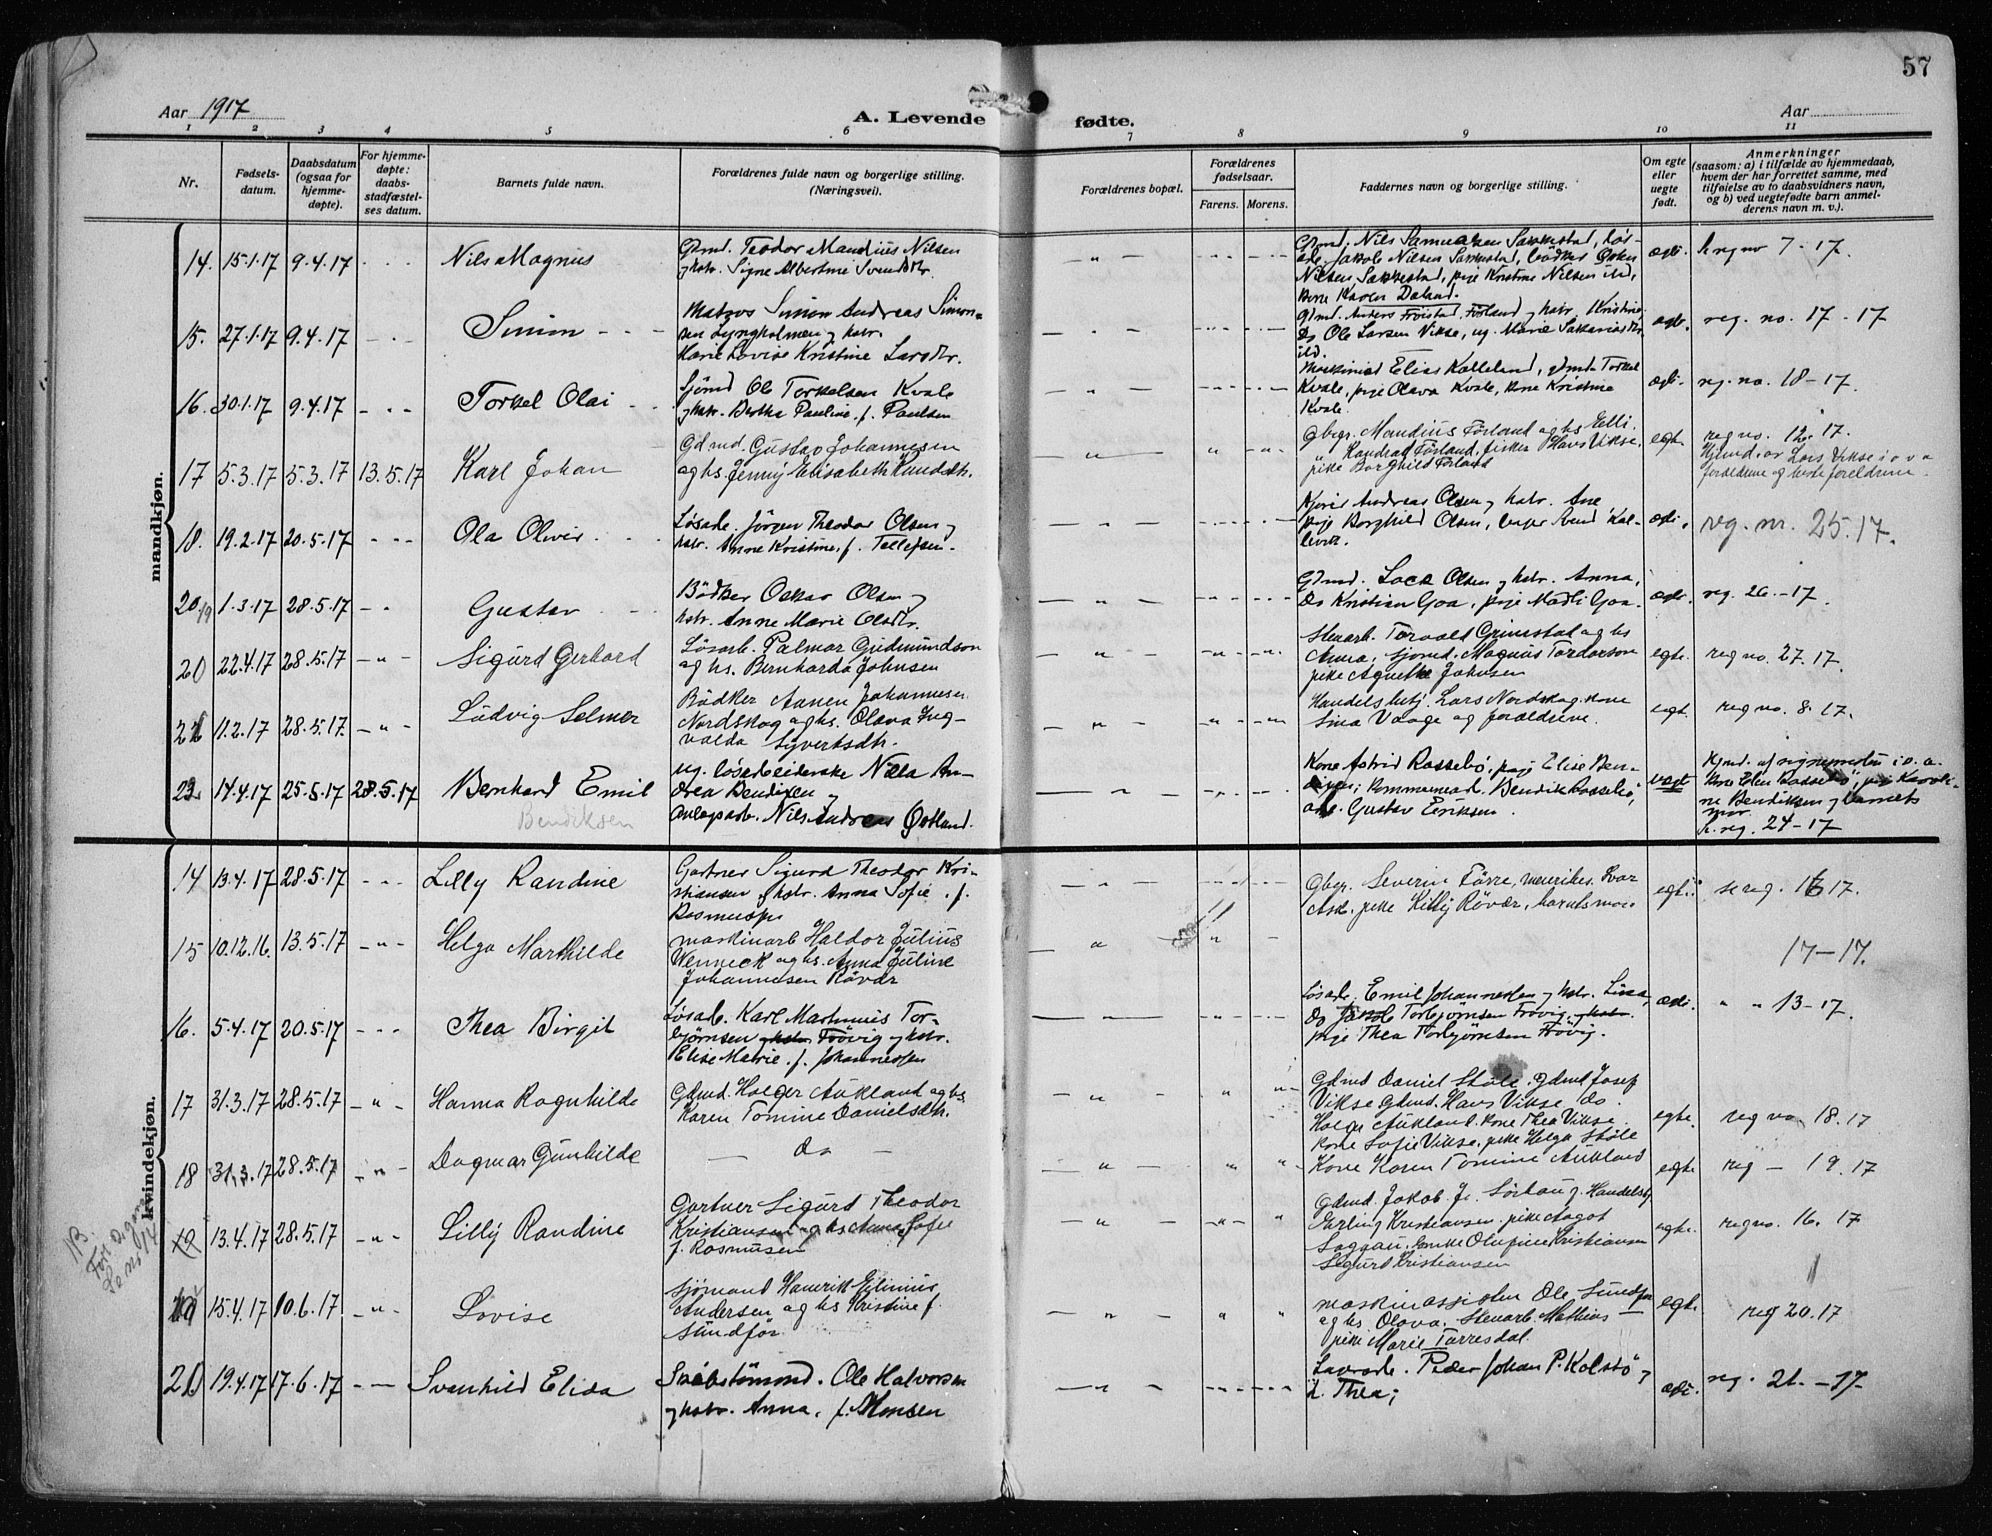 57
Aar 1917
A. Levende fødte.
Aar
1 2 3 4 5 6 7 8 9 10 11
Nr.
Fødsels-
datum.
Daabsdatum
(ogsaa for
hjemme-
døpte).
For hjemme-
døpte:
daabs-
stadfæstel-
ses datum.
Barnets fulde navn.
Forældrenes fulde navn og borgerlige stilling.
(Næringsvei).
Forældrenes bopæl.
Forældrenes
fødselsaar.
Farens. Morens.
Faddernes navn og borgerlige stilling.
Om egte
eller
uegte
født.
Anmerkninger
(saasom: a) i tilfælde av hjemmedaab,
hvem der har forrettet samme, med
tilføielse av to daabsvidners navn,
og b) ved uegtefødte barn anmel-
derens navn m. v.).
mandkjøn.
14. 15.1.17 9.4.17 Nils Magnus
Gdmd. Teodor Mandius Nilsen
og hstr. Signe Albertine Svendsdtr.
Gdmd. Nils Samuelsen Sakkestad, løs-
arb. Jakob Nilsen Sakkestad, bødker
Nilsen Sakkestad, pige Kristine Nilsen ild,
Kone Karen
ægte. reg no 7-17.
15. 27.1.17 9.4.17 Simon
Matros Simon Andreas Simon-
sen Lyngholmen og hstr.
Marie Lovise Kristine Larsdtr.
Gdmd. Anders Førland og hstr. Kristine,
Do Ole Larsen Vikse, ug. Marie
ild.
ægte. reg. no. 17-17
16. 30.1.17 9.4.17 Torkel Olai
Sjømd Ole Torkelsen Kvale
og hstr. Bertha Pauline, f. Paulsen
Maskinist Elias Kalleland, gdmd Torkel
Kvale, pige Olava Kvale, kone Kristine
Kvale.
ægte. reg. no. 18-17.
17 5.3.17 5.3.17 13.5.17 Karl Johan
Gdmd. Gustav Johannesen
og hs. Jenny Elisabeth Knudsdtr.
Gbgr. Mandius Førland og hs Elli.
" Kondrad Førland, fisker Hans Vikse,
pike Borghild Førland
egte reg no. 12. 17.
Hjmd. av Lars Vikse i o v a
forældrene og besteforeldrene.
18. 19.2.17 20.5.17 Ola Oliver
Løsarb. Jørgen Theodor Olsen og
hstr. Anne Kristine, f. Tellefsen.
Andreas Olsen og hstr. Ane
pige Borghild Olsen,
ægte. reg. nr. 25.17.
20 19 1.3.17 28.5.17 Gustav
Bødker Oskar Olsen og
hstr. Anne Marie Olsdtr.
Gdmd. Olsen og hstr. Anna,
Do Kristian Goa, pige Madli Goa.
ægte. reg. 26.-17.
20 22.4.17 28.5.17 Sigurd Gerhard
Løsarb. Palmar Gudmundson
og hs. Bernharda Johnsen
Stenarb. Torvald Grimstad og hs
Anna, sjømd. Magnus Tordarson
pike Agnethe Johnsen
egte. reg no. 27.17.
22 11.2.17 28.5.17. Ludvig Selmer
Bødker Aanen Johannesen
Nordskog og hs. Olava Ing-
valda Syvertsdtr.
Handelsbetj. Lars Nordskog, kone
Sina Vaage og forældrene.
egt. reg no. 8. 17.
23. 14.4.17 25.5.17 28.5.17 Bernhard Emil
Bendiksen
ug. løsarbeiderske Nilla An-
drea Bendixen og
Anlægsarb. Nils Andreas Østland.
Kone Astrid Rossebø, pige Elise Ben-
diksen, Bendik Rossebø,
arb. Gustav Eriksen.
uegt Hjmd. af i o. a.
Kone Elen Rossebø, pige Karoli-
ne Bendiksen og barnets
mor.
reg. 24-17
kvindekjøn.
14 13.4.17 28.5.17 Lilly Randine
Gartner Sigurd Theodor Kri-
stiansen og hstr. Anna Sofie, f.
Rasmussen
Gbgr. Severin Førre, Ivar
Ask. pike Kitty Røvær, barnets mor.
egte se reg. 16 17.
15 10.12.16. 13.5.17 Helga Marthilde
maskinarb Haldor Julius
Wenneck og hs. Anna Juline
Johannesen Røvær
17-17.
16. 5.4.17 20.5.17 Thea Birgit
Løsarb. Karl Martinius Tor-
bjørnsen Frøvig og hstr.
Elise Marie, f. Johannessen
Løsarb. Emil Johannessen og hstr. Lina,
Do Jakob Torbjørnsen Frøvig,
pige Thea Torbjørnsen Frøvig.
ægte. " " 13-17.
17 31.3.17 28.5.17 Hanna Ragnhilde
Gdmd. Holger Aukland og hs.
Karen Tomine Danielsdtr.
Gdmd Daniel Støle, Gdmd Josef
Vikse Gdmd. Hans Vikse, do
Holger Aukland. Kone Thea Vikse
kone Sofie Vikse, pike Helga Støle
egte. reg no. 18.17
18 31.3.17 28.5.17 Dagmar Gunhilde
— do —
Kone Karen Tomine Aukland
egte reg — 19.17
NB.
Før. 2 gange
Se no 14
19 13.4.17 28.5.17 Lilly Randine
Gartner Sigurd Theodor
Kristiansen og hs Anna Sofie
f. Rasmusen
Gdmd. Jakob Jr. Sørhaug. Handelsbj
Erling Kristiansen. pike Aagot
Saggau. Enke Olufine Kristiansen
Sigurd Kristiansen
egte. reg no. 16. 17
19 15.4.17 10.6.17 Lovise
Sjømand Henrik Edinius
Andersen og hs Kristine f.
Sundfør.
maskinassisten Ole Sundfør
og hs Olava. Stenarb. Mathias
pike Marie Førresdal.
egte reg 20.17
20 19.4.17 17.6.17 Svanhild Elida
Snøbstømmd. Ole Halvorsen
og hstr. Anna, f. Monsen
Peder Johan P. Kolstø og
h. Thea;
ægte. reg. 21.-17-